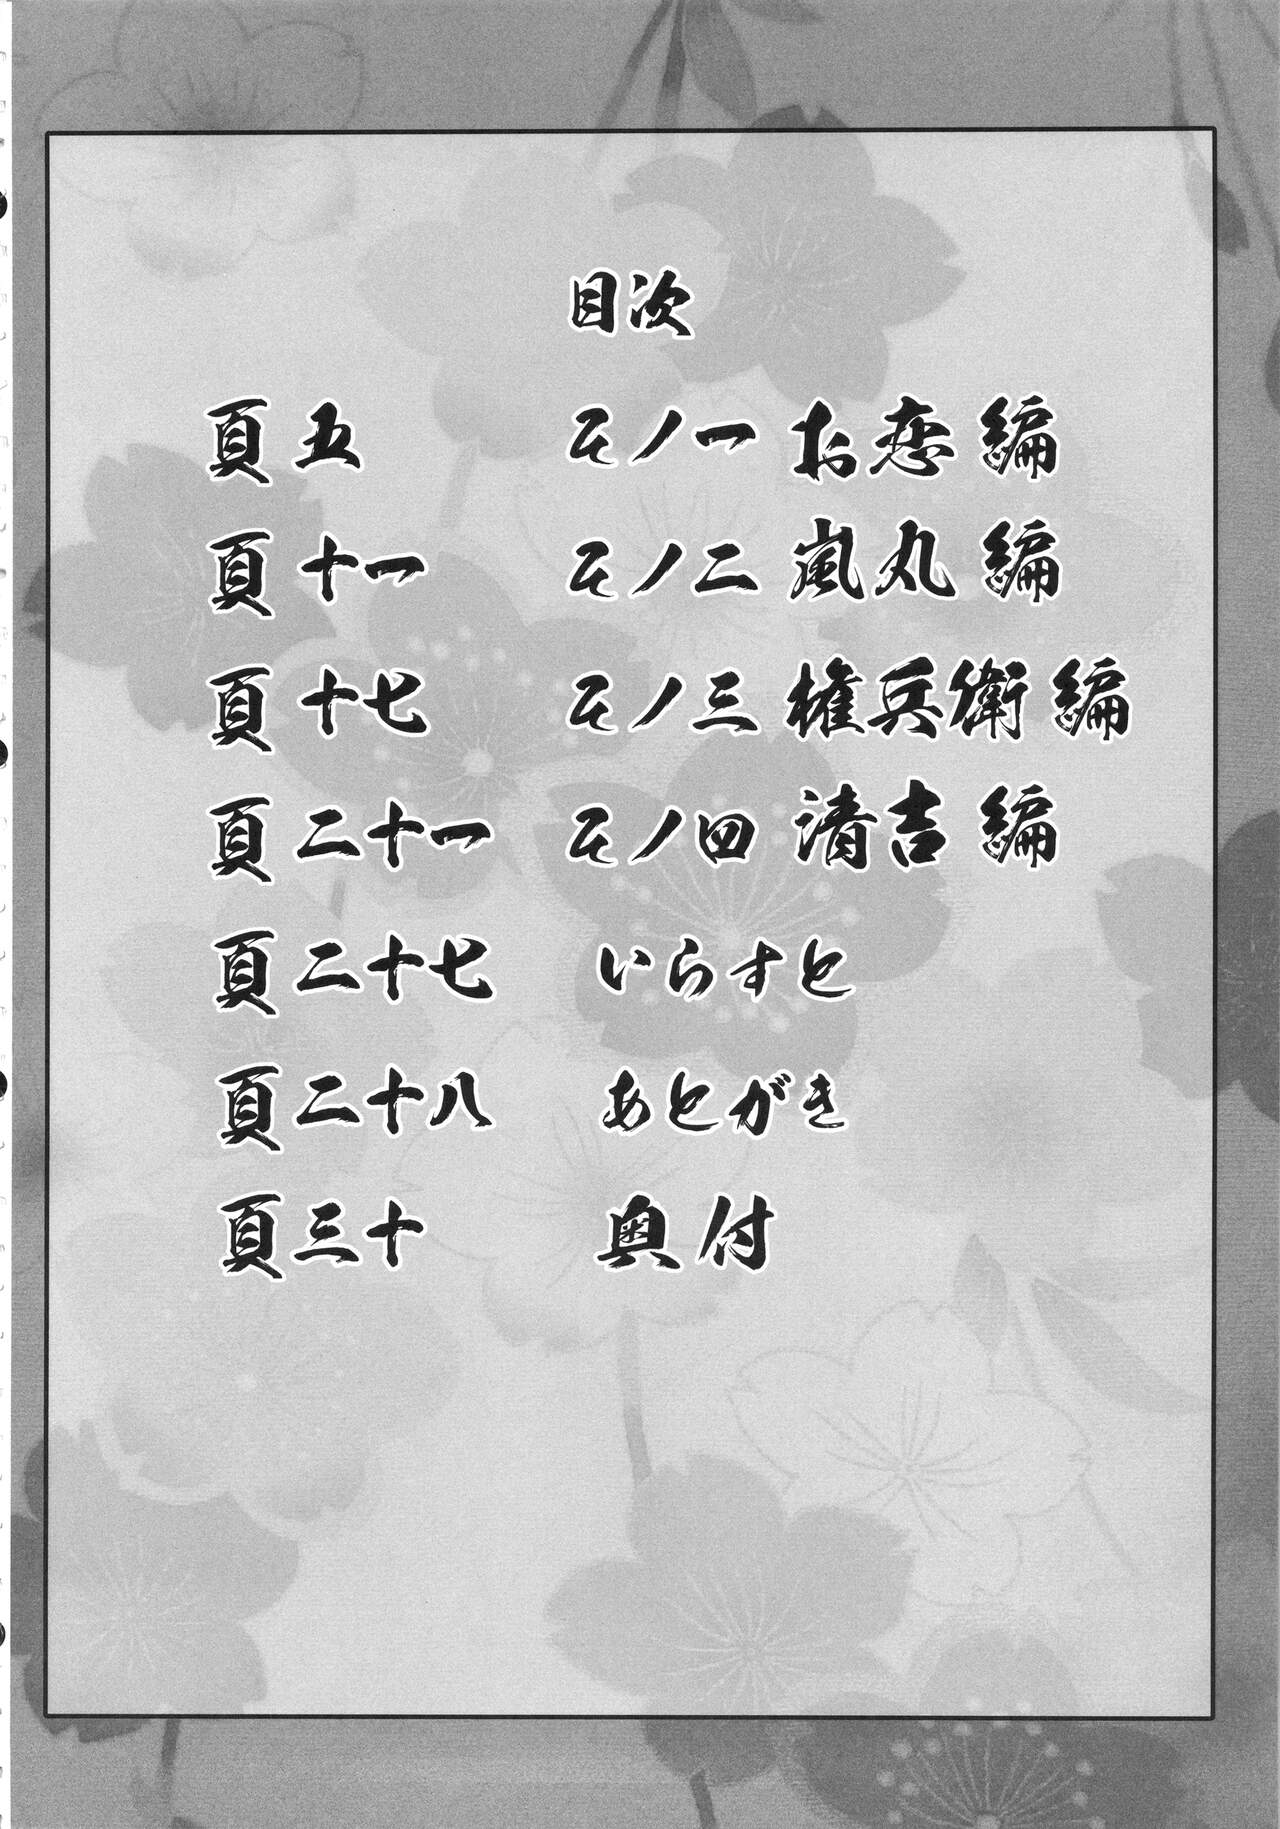 目次
頁五 モノ一 お恋編
頁十一 モノ二 嵐丸編
頁十七 モノ三 権兵衛編
頁二十一 モノ四 清吉編
頁二十七 いらすと
頁二十八 あとがき
頁三十 奥付